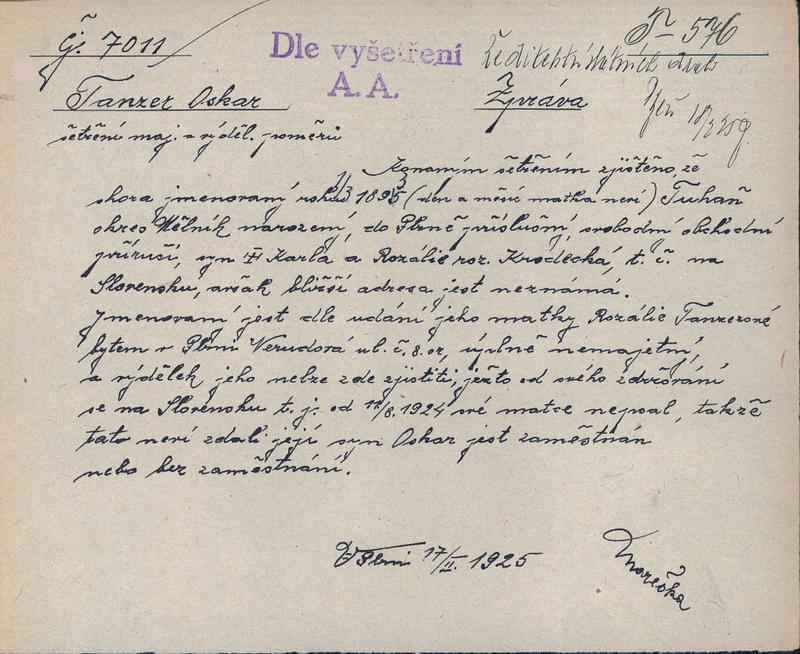 Čj. 7011
Dle vyšetření
A. A.
P 576
Tanzer Oskar
Zpráva
šetření maj. a výděl. poměrů
Konaným šetřením zjištěno, že
shora jmenovaný roku 1/3 1895 (den a měsíc matka neví) Tuhaň
okres Mělník narozený, do Plzně příslušný, svobodný obchodní
příručí, syn Karla a Rozálie roz. Krodecká, t. č. na
Slovensku, avšak bližší adresa jest neznámá.
Jmenovaný jest dle udání jeho matky Rozálie Tanzerové
bytem v Plzni Nerudová ul. č. 8. oz, úplně nemajetný,
a výdělek jeho nelze zde zjistiti, ježto od svého zdržování
se na Slovensku t. j. od 17/8. 1924 své matce nepsal, takže
tato neví zdali její syn Oskar jest zaměstnán
nebo bez zaměstnání.
V Plzni 17/II. 1925